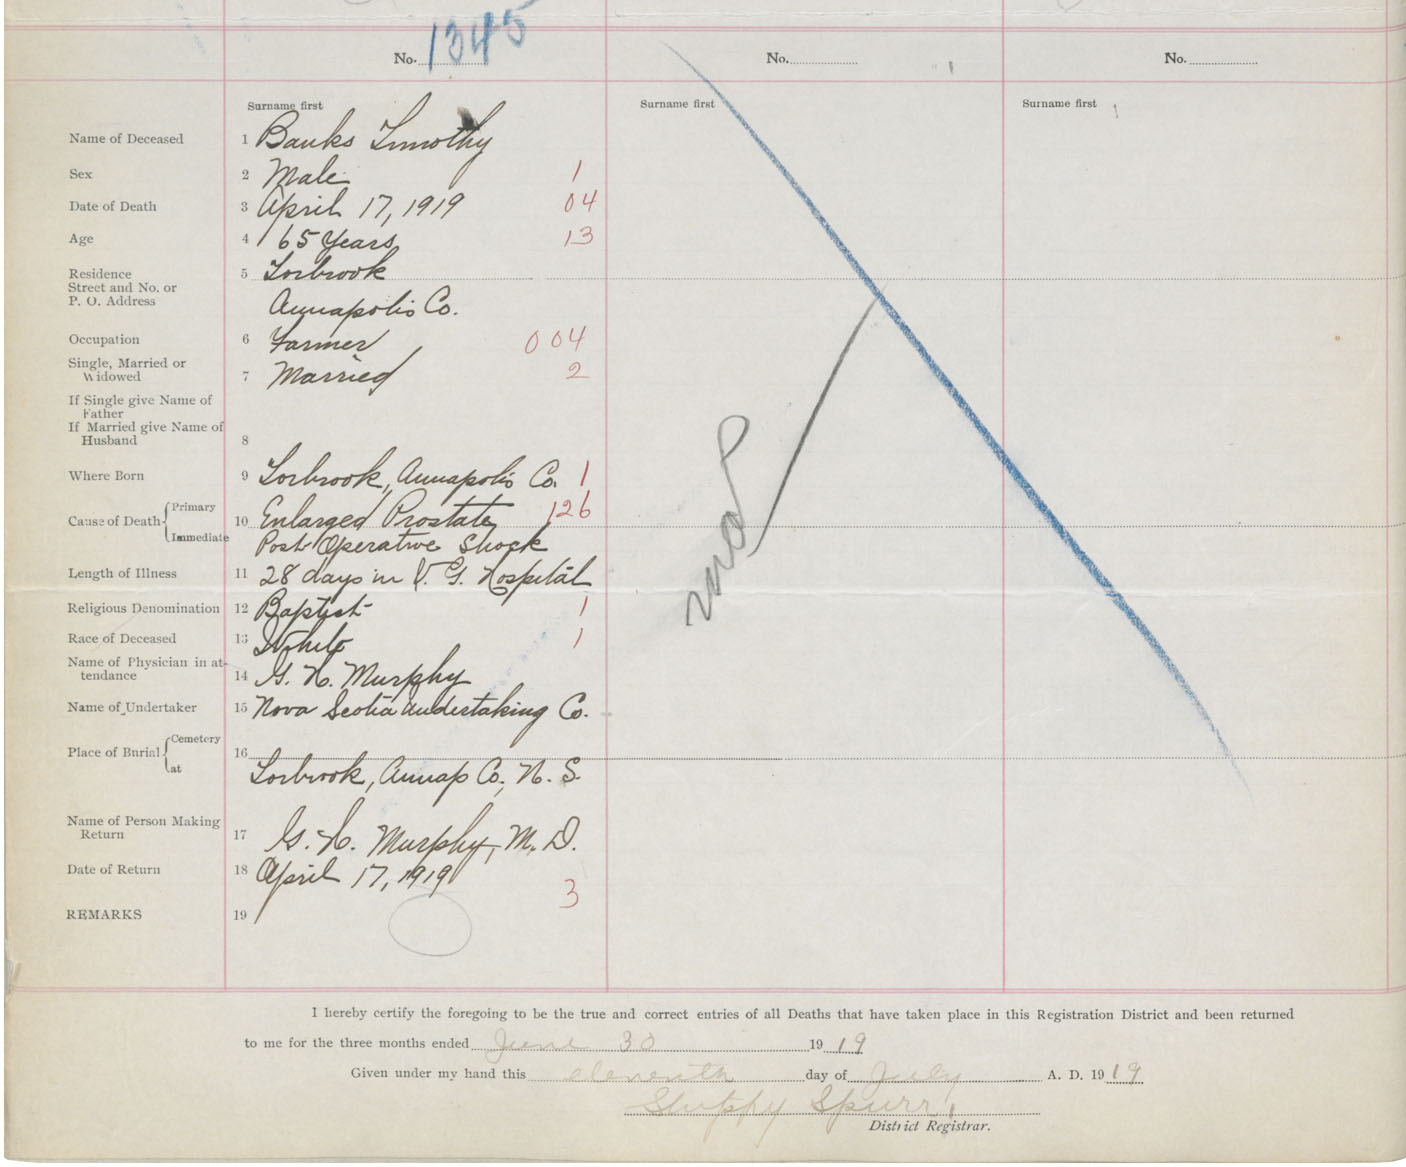 No. 1345 No. No.
Surname first Surname first Surname first
Name of Deceased 1 Banks Timothy
Sex 2 Male 1
Date of Death 3 April 17, 1919 04
Age 4 65 Years 13
Residence 5 Torbrook
Street and No. or
P. O. Address Annapolis Co.
Occupation 6 Farmer 004
Single, Married or
Widowed 7 Married 2
If Single give Name of
Father
If Married give Name of
Husband 8
Where Born 9 Torbrook, Annapolis Co. 1
Primary
Cause of Death 10 Enlarged Prostate 126
Immediate Post Operative Shock
Length of Illness 11 28 days in V. G. Hospital
Religious Denomination 12 Baptist 1
Race of Deceased 13 White 1
Name of Physician in at-
tendance 14 G. H. Murphy
Name of Undertaker 15 Nova Scotia Undertaking Co.
Cemetery
Place of Burial 16
at Torbrook, Annap Co, N. S.
Name of Person Making
Return 17 G. H. Murphy, M. D.
Date of Return 18 April 17, 1919
3
REMARKS 19
I hereby certify the foregoing to be the true and correct entries of all Deaths that have taken place in this Registration District and been returned
to me for the three months ended June 30 19 19
Given under my hand this eleventh day of July A. D. 19 19
Spurr
District Registrar.